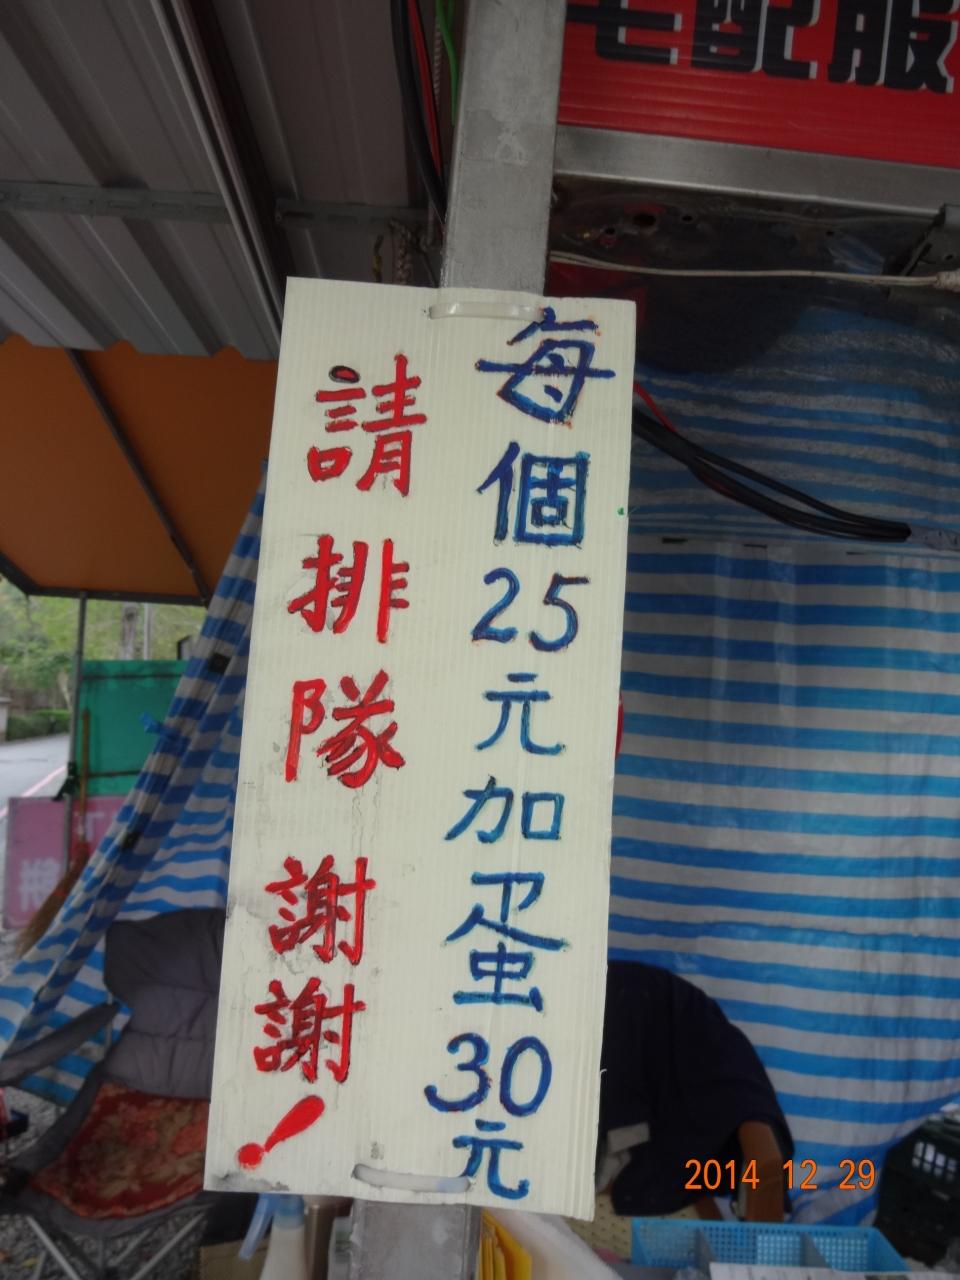 宅配服
每個25元加蛋30元
請排隊謝謝!
2014 12 29